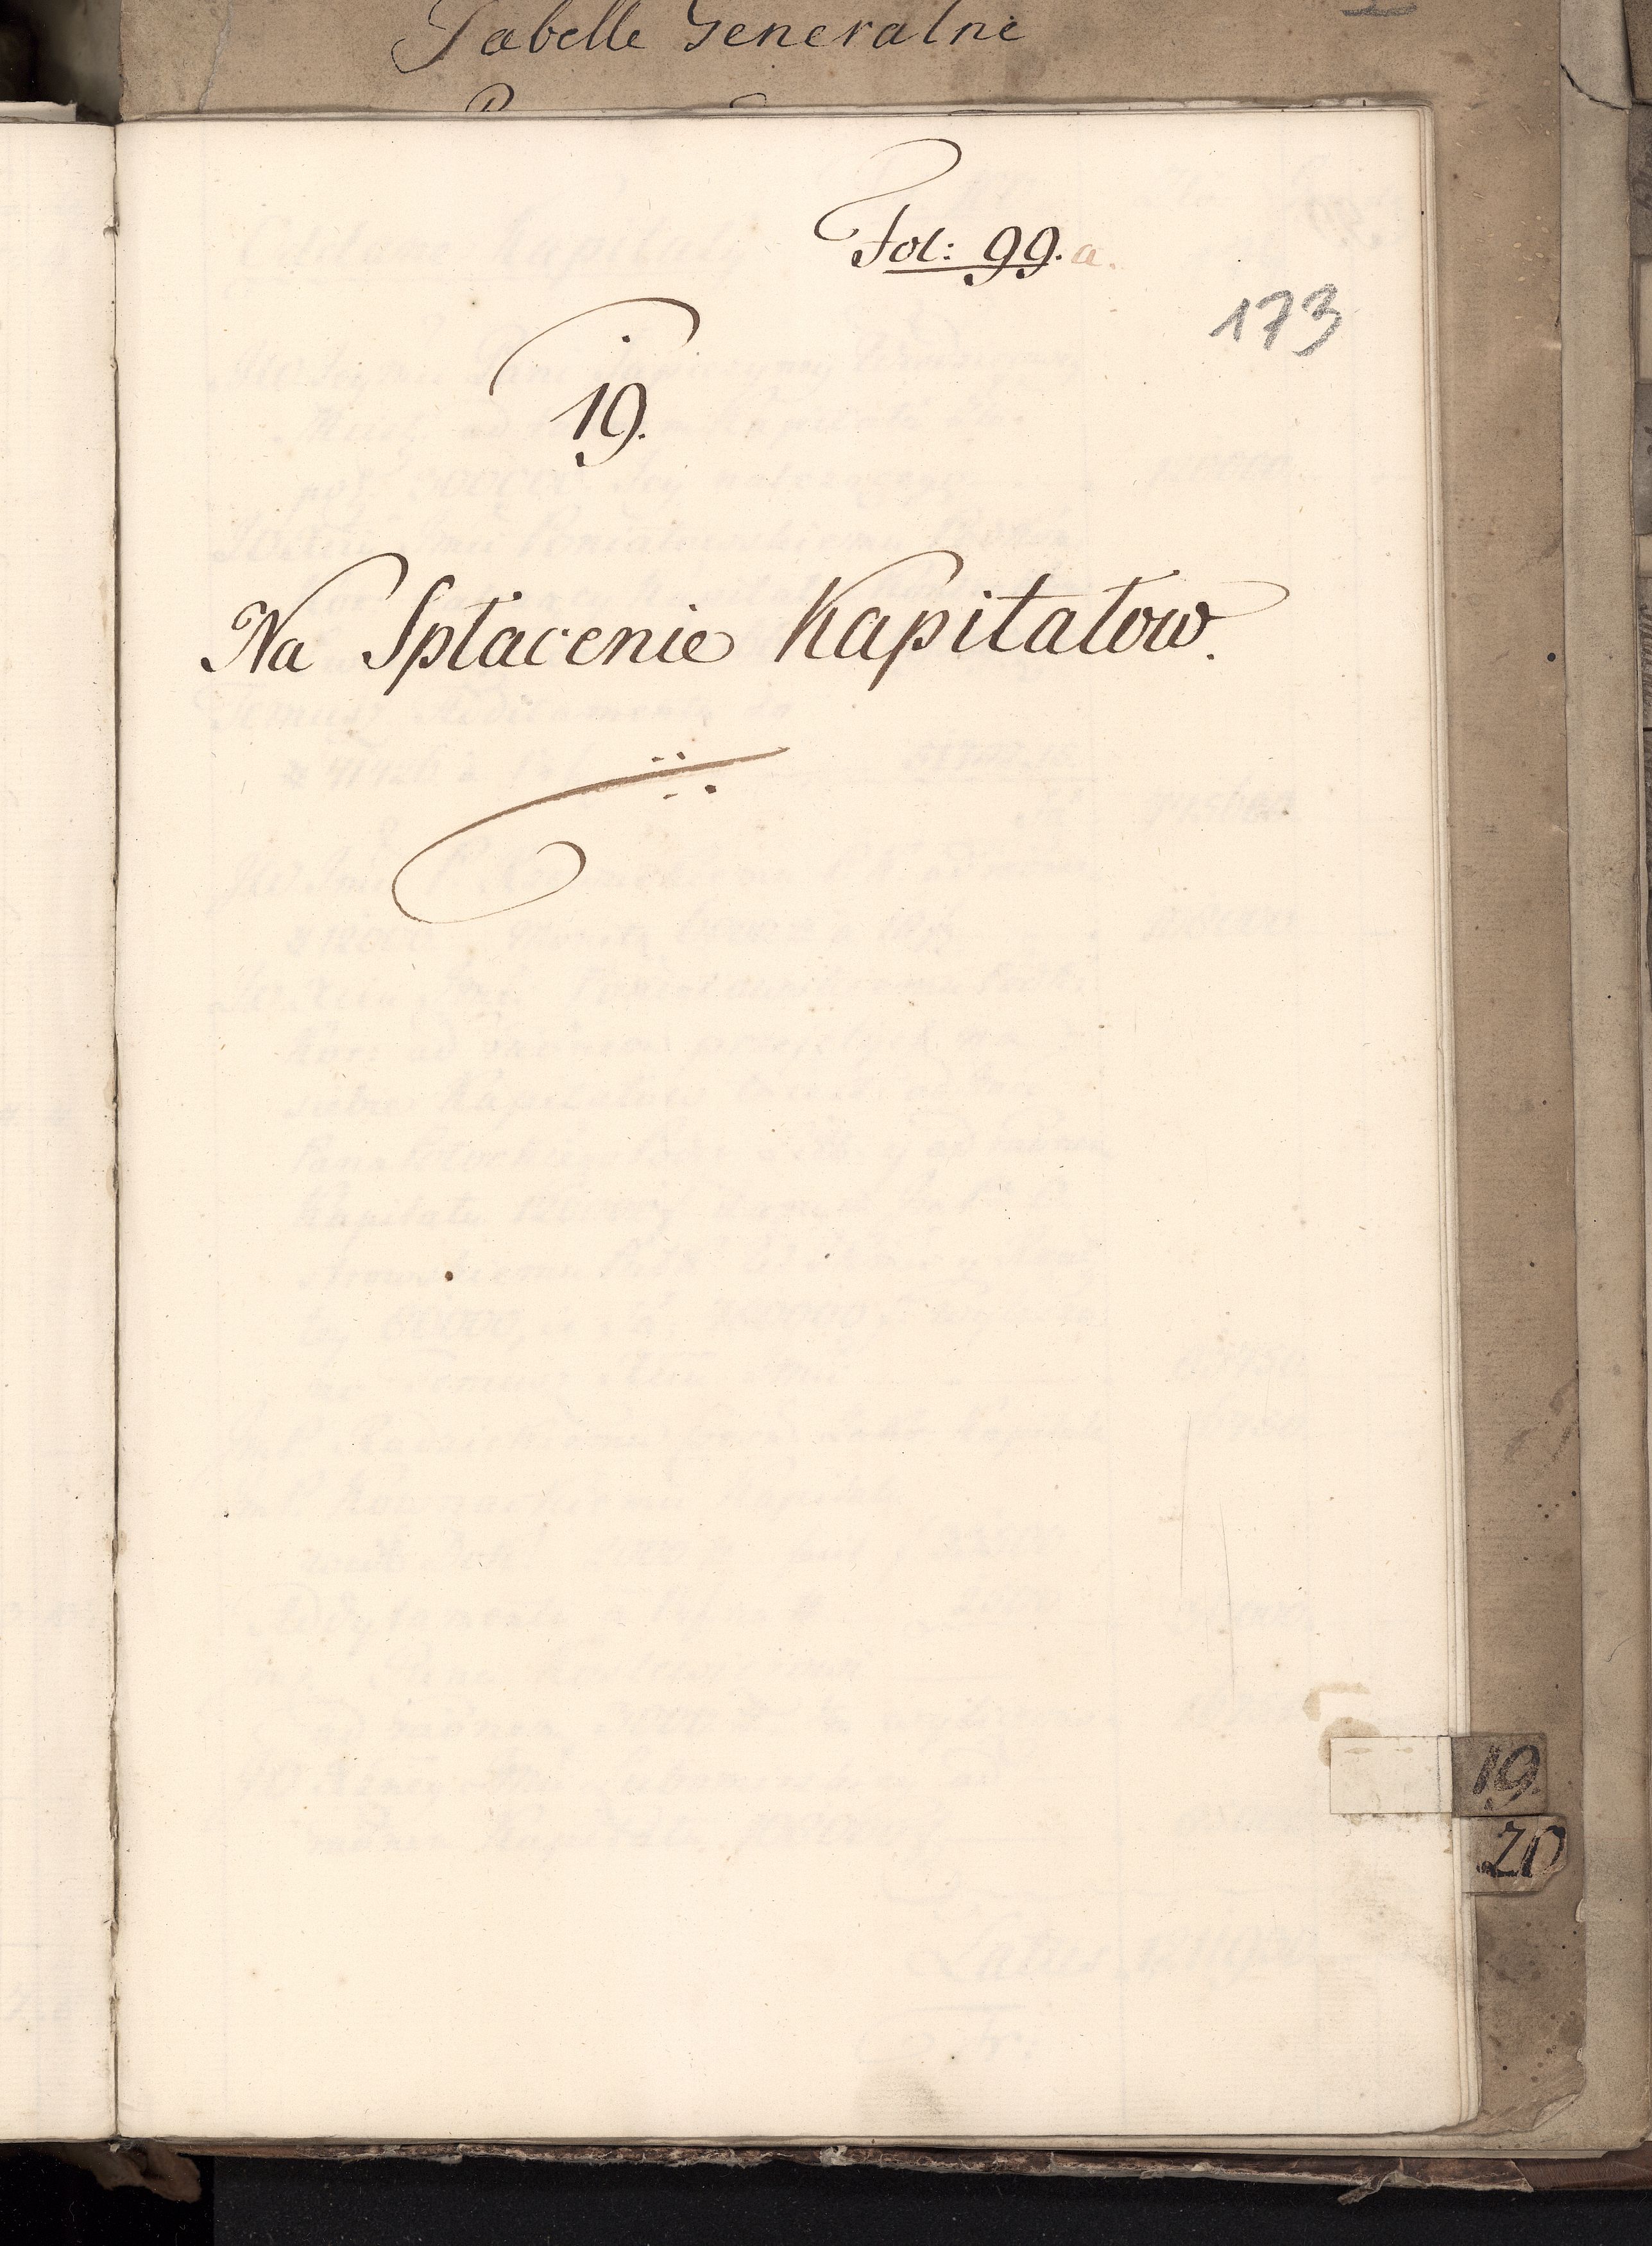 Tabelle Generalne
Fol: 99. a.
173
19.
Na Spłacenie Kapitałow.
19.
20